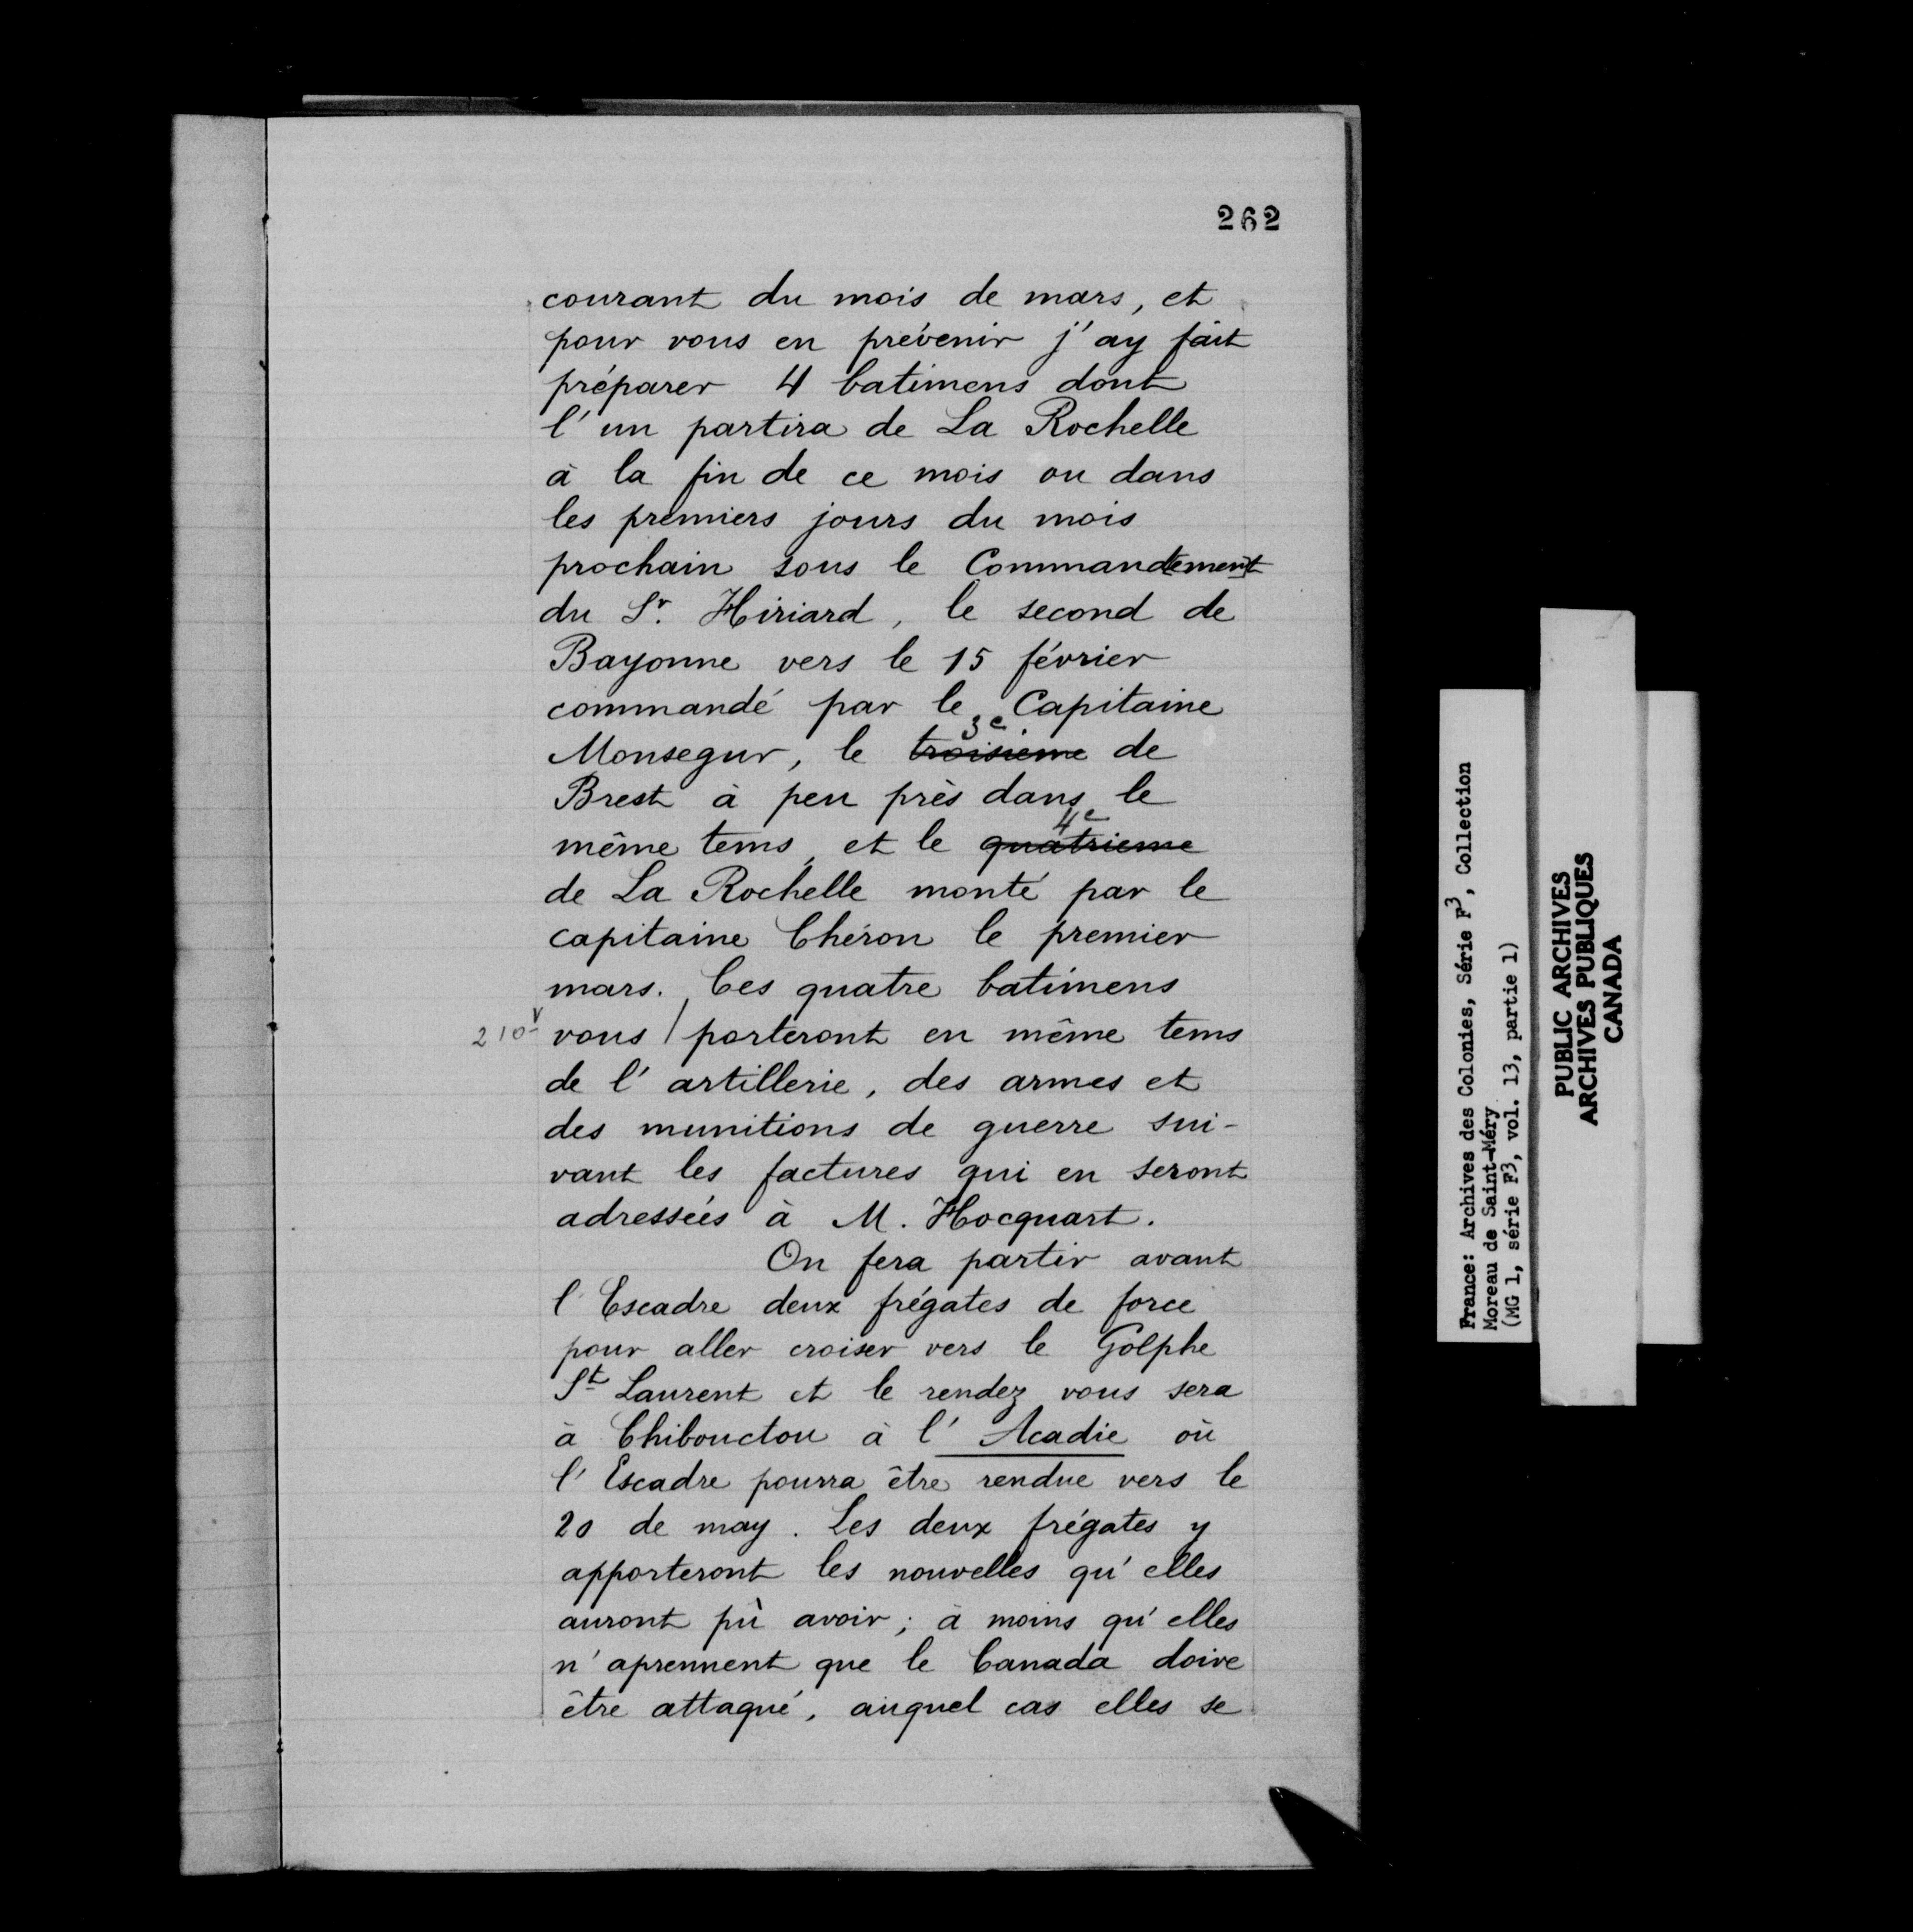 262
courant du mois de mars, et
pour vous en prévenir j'ay fait
préparer 4 batimens dont
l'un partira de La Rochelle
à la fin de ce mois ou dans
les premiers jours du mois
prochain sous le Commandement
du Sr. Hiriard, le second de
Bayonne vers le 15 février
commandé par le Capitaine
Monsegur, le troisieme 3e de
Brest à peu près dans le
même tems, et le quatrieme 4e
de La Rochelle monté par le
capitaine Chéron le premier
mars. Ces quatre batimens
210v vous / porteront en même tems
de l'artillerie, des armes et
des munitions de guerre sui-
vant les factures qui en seront
adressées à M. Hocquart.
On fera partir avant
l'Escadre deux frégates de force
pour aller croiser vers le Golphe
St Laurent et le rendez vous sera
à Chibouctou à l'Acadie où
l'Escadre pourra être rendue vers le
20 de may. Les deux frégates y
apporteront les nouvelles qu'elles
auront pù avoir; à moins qu'elles
n'aprennent que le Canada doive
être attaqué, auquel cas elles se
France: Archives des Colonies, Série F3, Collection
Moreau de Saint-Méry
(MG 1, série F3, vol. 13, partie 1)
PUBLIC ARCHIVES
ARCHIVES PUBLIQUES
CANADA